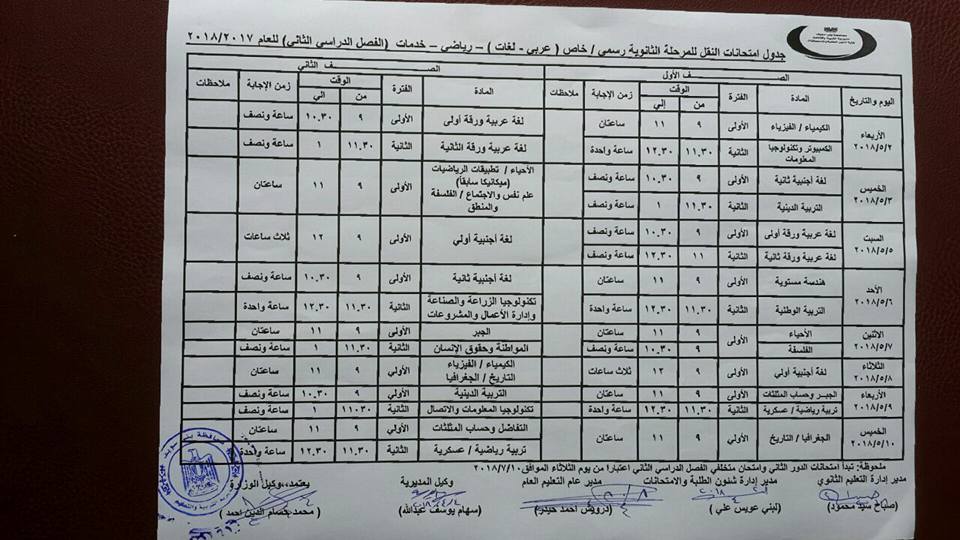 جدول امتحانات النقل للمرحلة الثانوية رسمى / خاص ( عربى - لغات ) – رياضي – خدمات (الفصل الدراسي الثاني) للعام ٢٠١٨/٢٠١٧
الصـف الأول
الصـف الثاني
اليوم والتاريخ المادة الفترة الوقت زمن الإجابة ملاحظات المادة الفترة الوقت زمن الإجابة ملاحظات
من إلي من إلي
الأربعاء ٢٠١٨/٥/٢
الكيمياء / الفيزياء الأولى ٩ ١١ ساعتان لغة عربية ورقة أولى الأولى ٩ ١٠.٣٠ ساعة ونصف
الكمبيوتر وتكنولوجيا المعلومات الثانية ١١.٣٠ ١٢.٣٠ ساعة واحدة لغة عربية ورقة الثانية الثانية ١١.٣٠ ١ ساعة ونصف
الخميس ٢٠١٨/٥/٣
لغة أجنبية ثانية الأولى ٩ ١٠.٣٠ ساعة ونصف الأحياء / تطبيقات الرياضيات (ميكانيكا سابقاً) علم نفس والاجتماع / الفلسفة والمنطق الأولى ٩ ١١ ساعتان
التربية الدينية الثانية ١١.٣٠ ١ ساعة ونصف
السبت ٢٠١٨/٥/٥
لغة عربية ورقة أولى الأولى ٩ ١٠.٣٠ ساعة ونصف لغة أجنبية أولي الأولى ٩ ١٢ ثلاث ساعات
لغة عربية ورقة ثانية الثانية ١١ ١٢.٣٠ ساعة ونصف
الأحد ٢٠١٨/٥/٦
هندسة مستوية الأولى ٩ ١١ ساعتان لغة أجنبية ثانية الأولى ٩ ١٠.٣٠ ساعة ونصف
التربية الوطنية الثانية ١١.٣٠ ١٢.٣٠ ساعة واحدة تكنولوجيا الزراعة والصناعة وإدارة الأعمال والمشروعات الثانية ١١.٣٠ ١٢.٣٠ ساعة واحدة
الاثنين ٢٠١٨/٥/٧
الأحياء الأولى ٩ ١١ ساعتان الجبر الأولى ٩ ١١ ساعتان
الفلسفة ٩ ١٠.٣٠ ساعة ونصف المواطنة وحقوق الإنسان الثانية ١١.٣٠ ١ ساعة ونصف
الثلاثاء ٢٠١٨/٥/٨
لغة أجنبية أولي الأولى ٩ ١٢ ثلاث ساعات الكيمياء / الفيزياء التاريخ / الجغرافيا الأولي ٩ ١١ ساعتان
الأربعاء ٢٠١٨/٥/٩
الجبر وحساب المثلثات الأولى ٩ ١١ ساعتان التربية الدينية الأولي ٩ ١٠.٣٠ ساعة ونصف
تربية رياضية / عسكرية الثانية ١١.٣٠ ١٢.٣٠ ساعة واحدة تكنولوجيا المعلومات والاتصال الثانية ١١.٣٠ ١ ساعة ونصف
الخميس ٢٠١٨/٥/١٠
الجغرافيا / التاريخ الأولي ٩ ١١ ساعتان التفاضل وحساب المثلثات الأولي ٩ ١١ ساعتان
تربية رياضية / عسكرية الثانية ١١.٣٠ ١٢.٣٠ ساعة واحدة
ملحوظة: تبدأ امتحانات الدور الثاني وامتحان متخلفي الفصل الدراسي الثاني اعتبارا من يوم الثلاثاء الموافق ٢٠١٨/٧/١٠.
مدير إدارة التعليم الثانوي مدير إدارة شئون الطلبة والامتحانات مدير عام التعليم العام وكيل المديرية يعتمد،،وكيل الوزارة
(صباح سيد محمود) (لبني عويس علي) (درويش احمد حيدر) (سهام يوسف عبدالله) (محمد حسام الدين احمد)